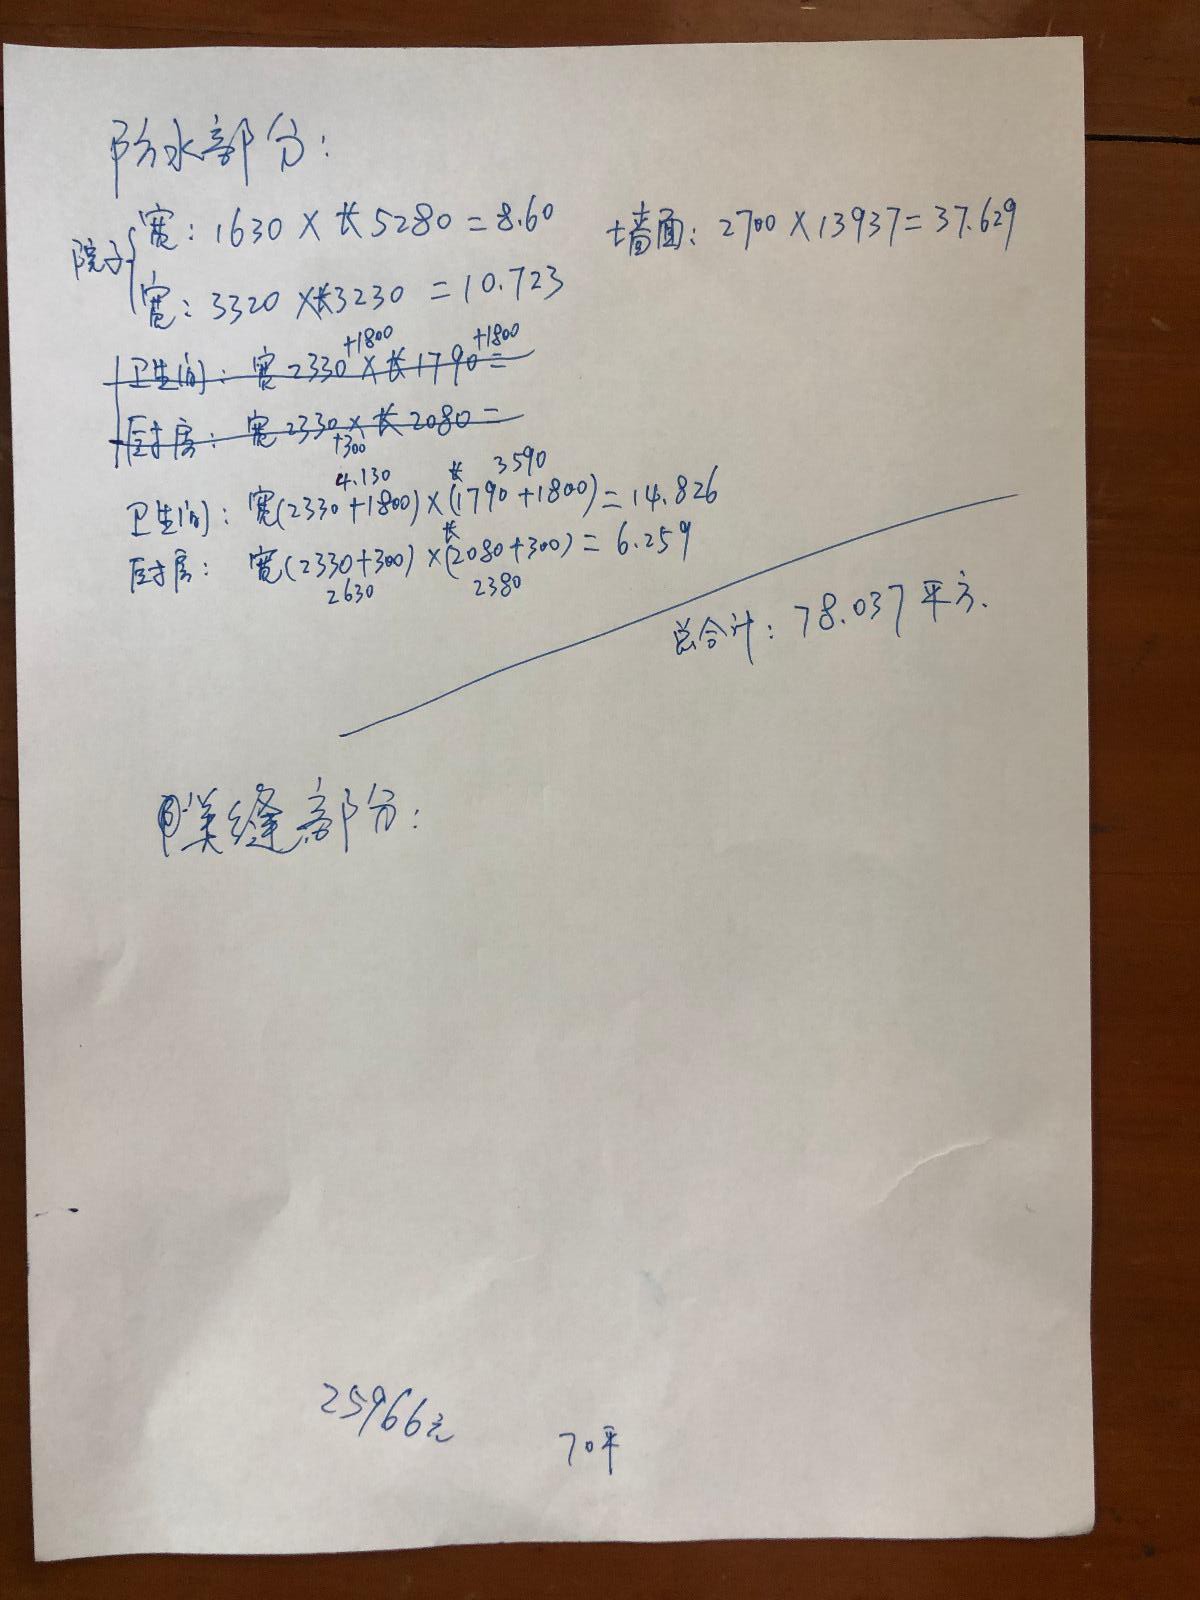 防水部分:
院子
宽: 1630 × 长 5280 = 8.60
墙面: 2700 × 13937 = 37.629
宽: 3320 × 长3230 = 10.723
+1800 +1800
卫生间: 宽 2330 × 长 1790 =
厨房: 宽 2330 × 长 2080 =
+300
4.130 长 3590
卫生间: 宽(2330+1800)×(1790+1800)=14.826
长
厨房: 宽(2330+300)×(2080+300)= 6.259
2630 2380
总合计: 78.037 平方.
美缝部分:
25966元
70平